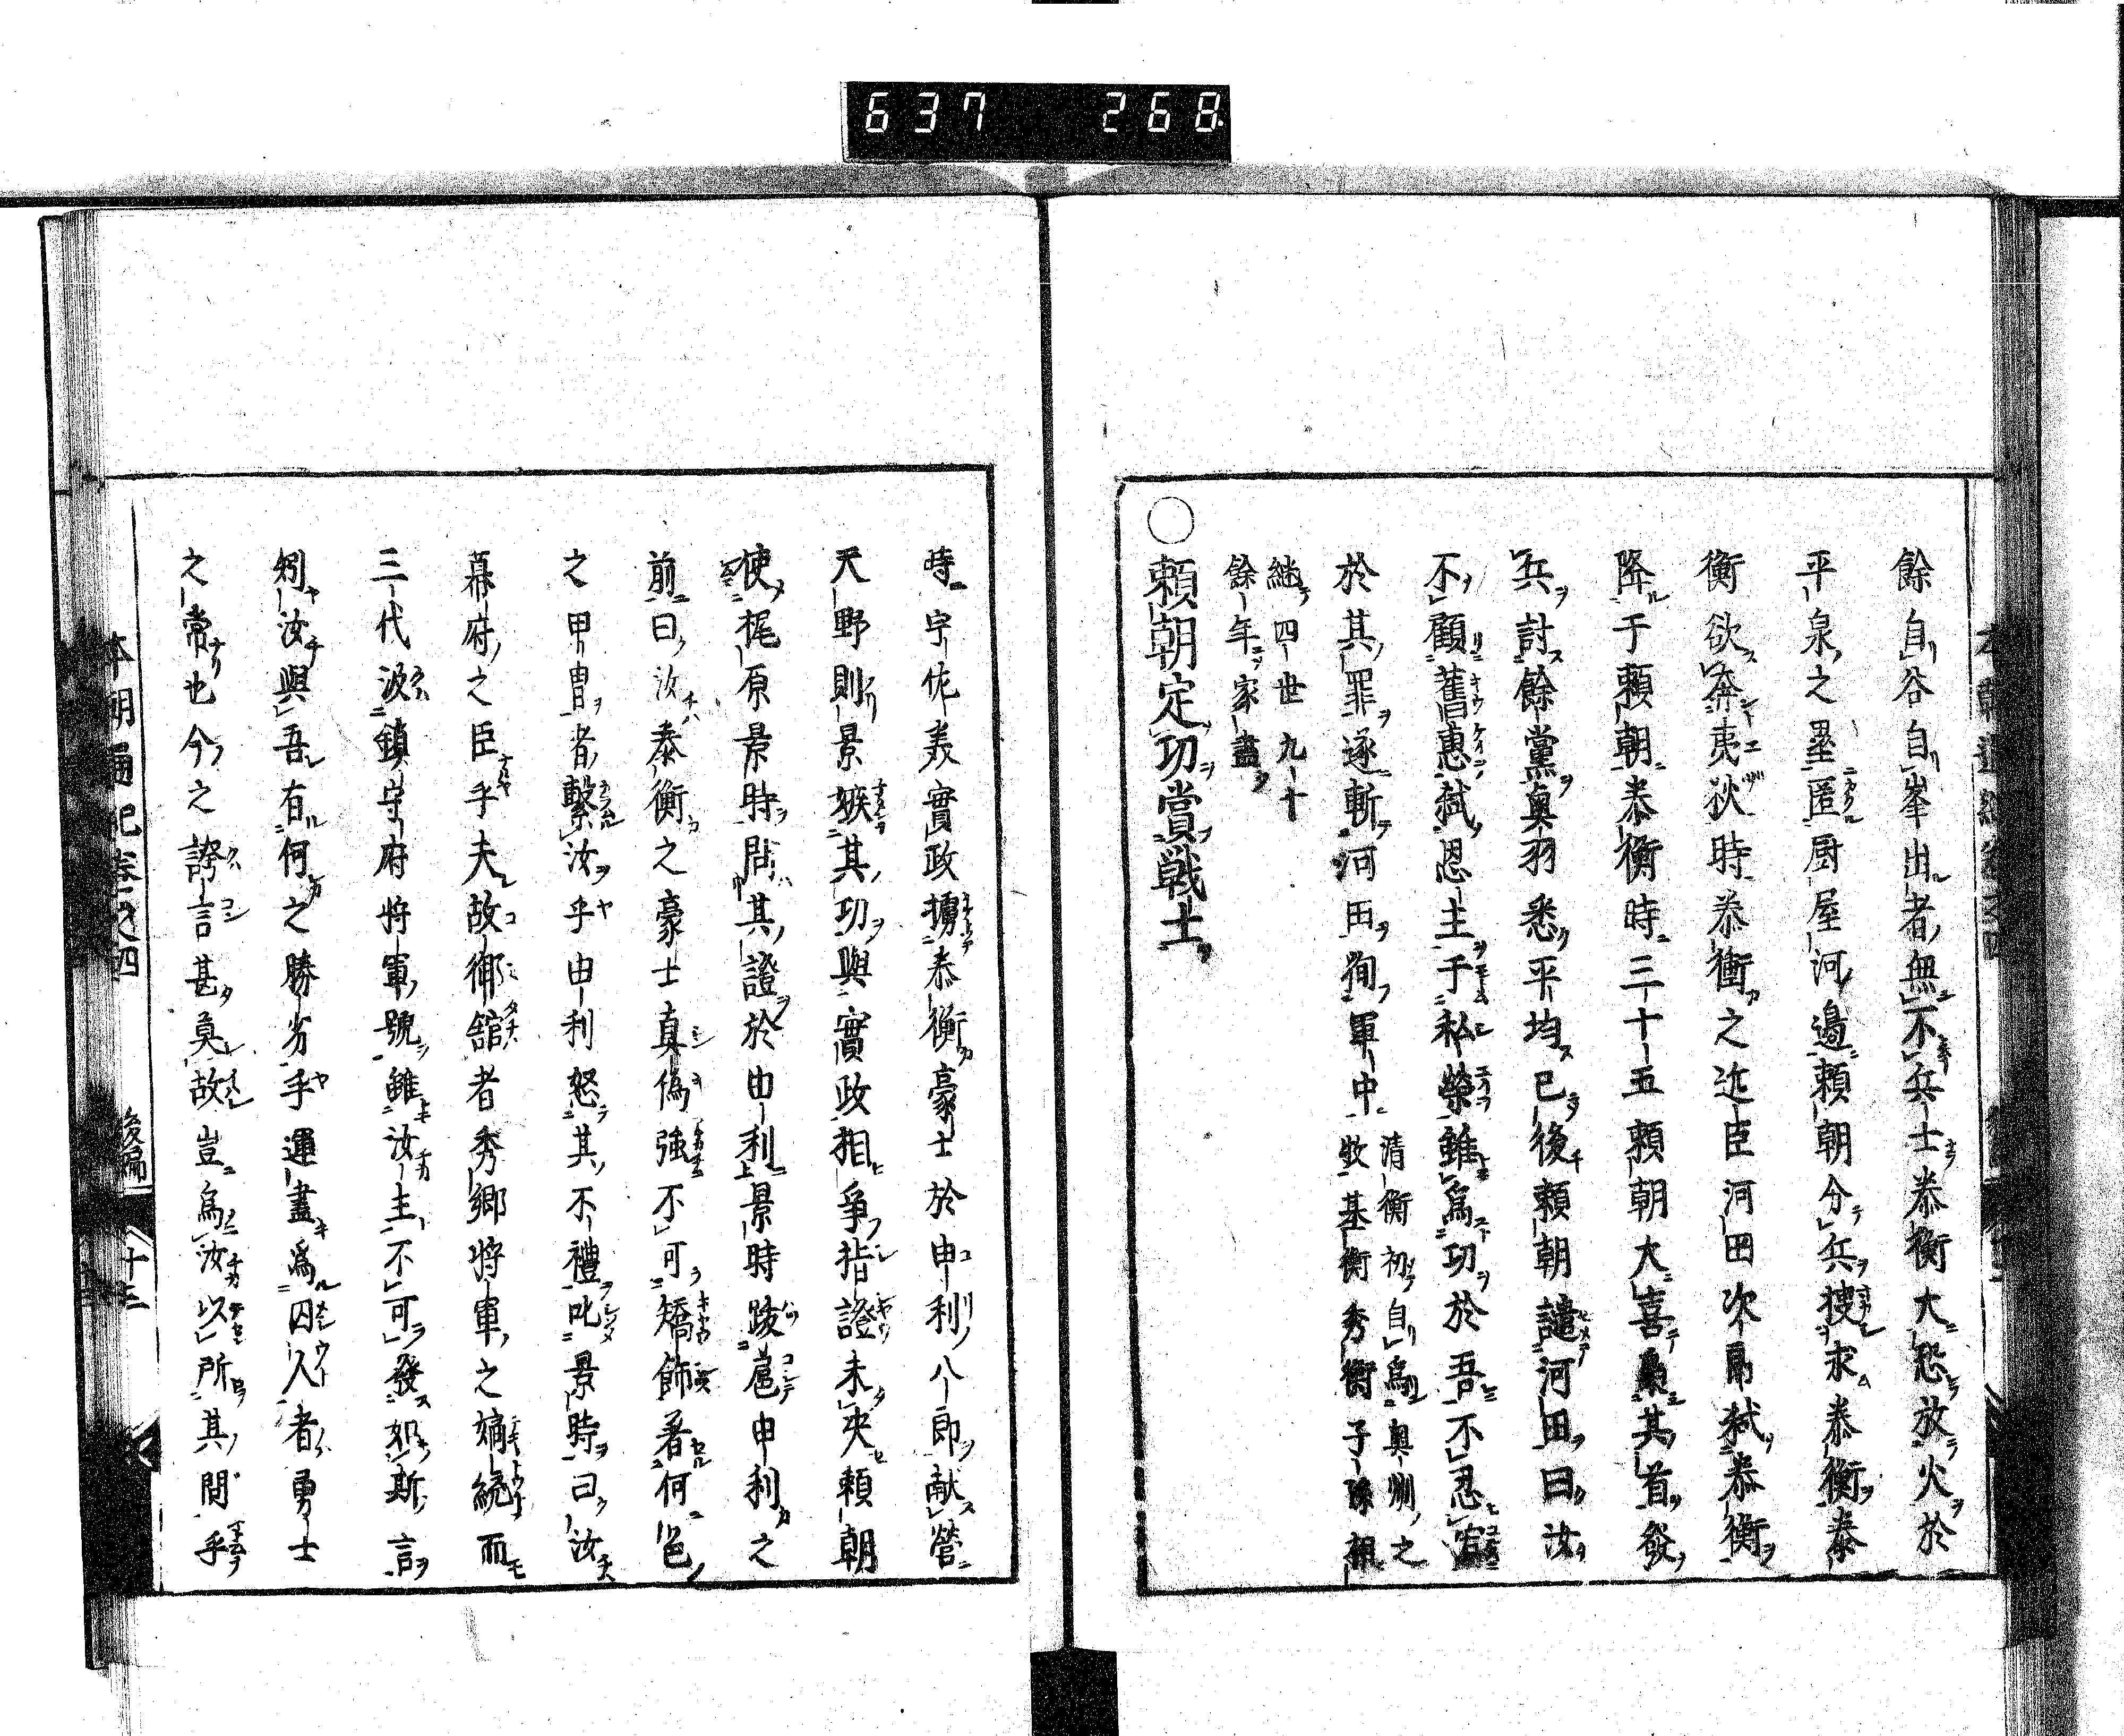 637 268
餘自谷自峯出者無不兵士泰衡大恐放火於
平泉之壘匿厨屋河邊賴朝分兵搜求泰衡泰
衡欲奔夷狄時泰衡之近臣河田次郎弑泰衡
降于賴朝泰衡時三十五賴朝大喜梟其首發
兵討餘黨奥羽悉平均已後賴朝譴河田曰汝
不顧舊惠弑恩主于私榮雖爲功於吾不忍宥
於其罪遂斬河田徇軍中
清衡初自爲奥州之
牧基衡秀衡子孫相
継四世九十
餘年家盡
○賴朝定功賞戰士
時宇佐美實政擄泰衡豪士於由利八郎献營
天野則景嫉其功與實政相爭指證未决賴朝
使梶原景時問其證於由利景時跋扈由利之
前曰汝泰衡之豪士真偽強不可矯飾著何色
之甲冑者繫汝乎由利怒其不禮叱景時曰汝
幕府之臣乎夫故御舘者秀鄉將軍之嫡統而
三代汲鎮守府將軍號雖汝主不可發如斯言
矧汝與吾有何之勝劣乎運盡爲囚人者勇士
之常也今之誇言甚莫故豈爲汝以所其問乎
本朝通紀卷之四 後編 十三